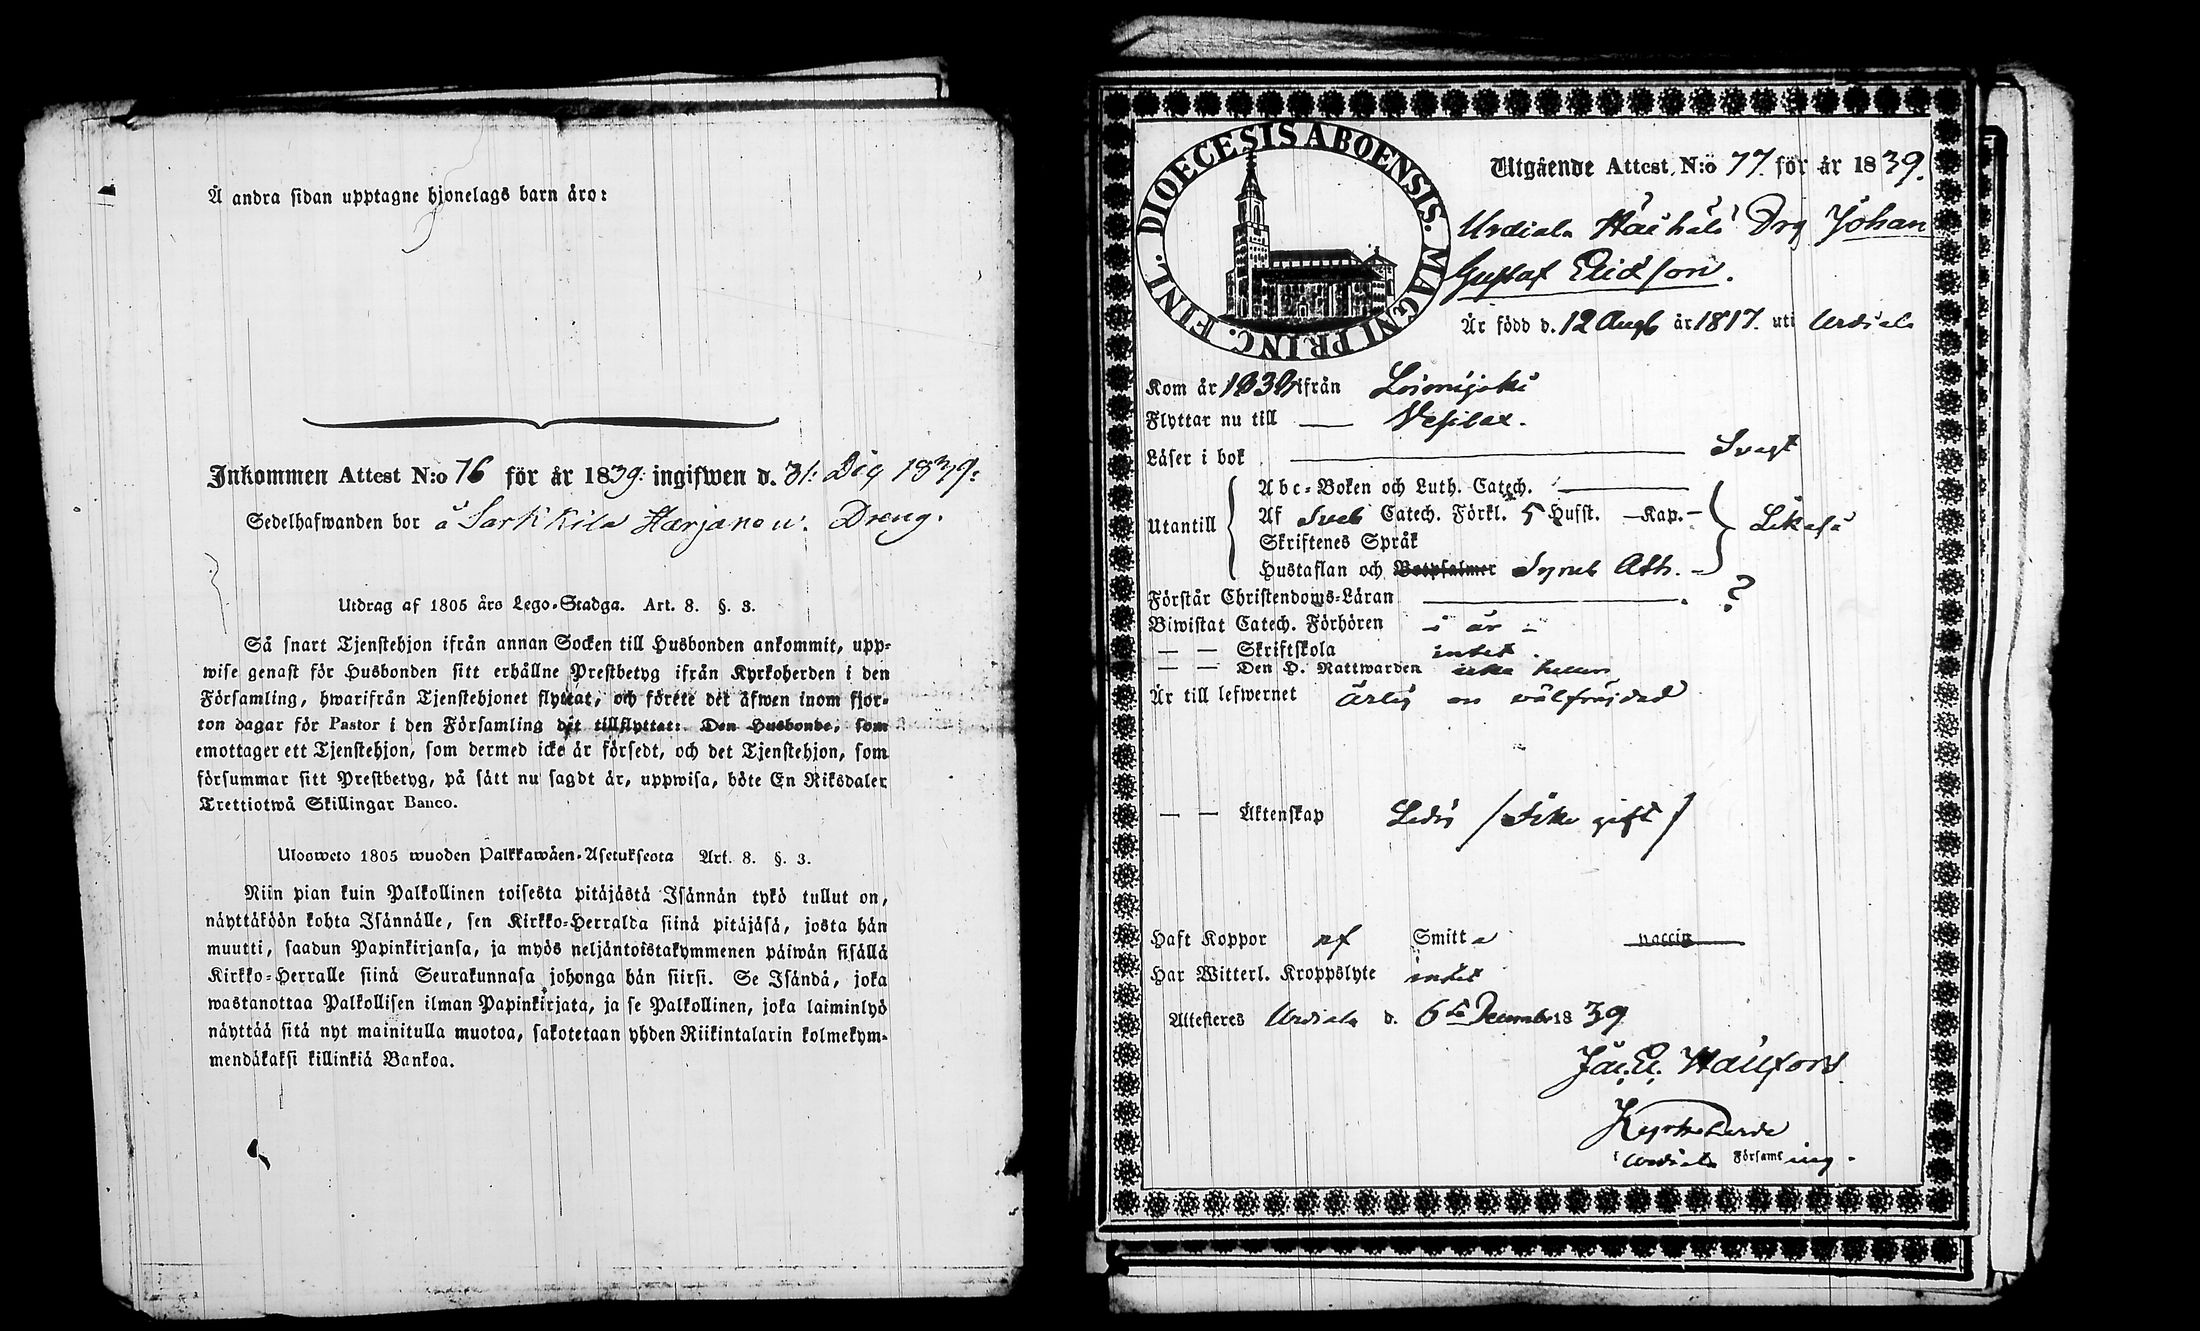 Å andra sidan upptagne hjonelags barn äro:
Inkommen Attest N:o 76 för år 1839: ingifwen d. 31: 1839:
Sedelhafwanden bor å Sarkkila Harjanen Dreng.
Utdrag af 1805 års Lego-Stadga. Art. 8. §. 3.
Så snart Tjenstehjon ifrån annan Socken till Husbonden ankommit, upp-
wise genast för Husbonden sitt erhållne Prestbetyg ifrån Kyrkoherden i den
Församling, hwarifrån Tjenstehjonet flyttat, och förete det äfwen inom fjor-
ton dagar för Pastor i den Församling dit tillflyttat: Den Husbonde, som
emottager ett Tjenstehjon, som dermed icke är försedt, och det Tjenstehjon, som
försummar sitt Prestbetyg, på sätt nu sagdt är, uppwisa, böte En Riksdaler
Trettiotwå Skillingar Banco.
Ulosweto 1805 wuoden Palkkawäen-Asetuksesta Art. 8. §. 3.
Niin pian kuin Palkollinen toisesta pitäjästä Isännän tykö tullut on,
näyttäköön kohta Isännälle, sen Kirkko-Herralda siinä pitäjäsä, josta hän
muutti, saadun Papinkirjansa, ja myös neljäntoistakymmenen päiwän sisällä
Kirkko-Herralle siinä Seurakunnasa johonga hän siirsi. Se Isändä, joka
wastanottaa Palkollisen ilman Papinkirjata, ja se Palkollinen, joka laiminlyö
näyttää sitä nyt mainitulla muotoa, sakotetaan yhden Riikintalarin kolmekym-
mendäkaksi killinkiä Bankoa.
DIOECESIS ABOENSIS. MAGNI PRINC. FINL.
Utgående Attest, N:o 77. för år 1839.
Urdiala Drg Johan
Gustaf Ericsson.
Är född d. 12 Aug år 1817. uti Urdiala
Kom år 1839 ifrån Loimijoki
Flyttar nu till Vesilax.
Läser i bok Svagt
Abc-Boken och Luth. Catech.
Utantill Af Sveb Catech. Förkl. 5 Hufst. Kap. Likaså
Skriftenes Språk
Hustaflan och Botpsalmer Symb Ath.
Förstår Christendoms-Läran ?
Biwistat Catech. Förhören i år
Skriftskola intet.
Den H. Nattwarden icke
Är till lefwernet ärlig
Äktenskap Ledig / Icke gift /
Haft Koppor af Smitta vaccin
Har Witterl. Kroppslyte intet
Attesteres Urdiala d. 6te December 1839
Kyrkoherde
i Urdiala Församling.